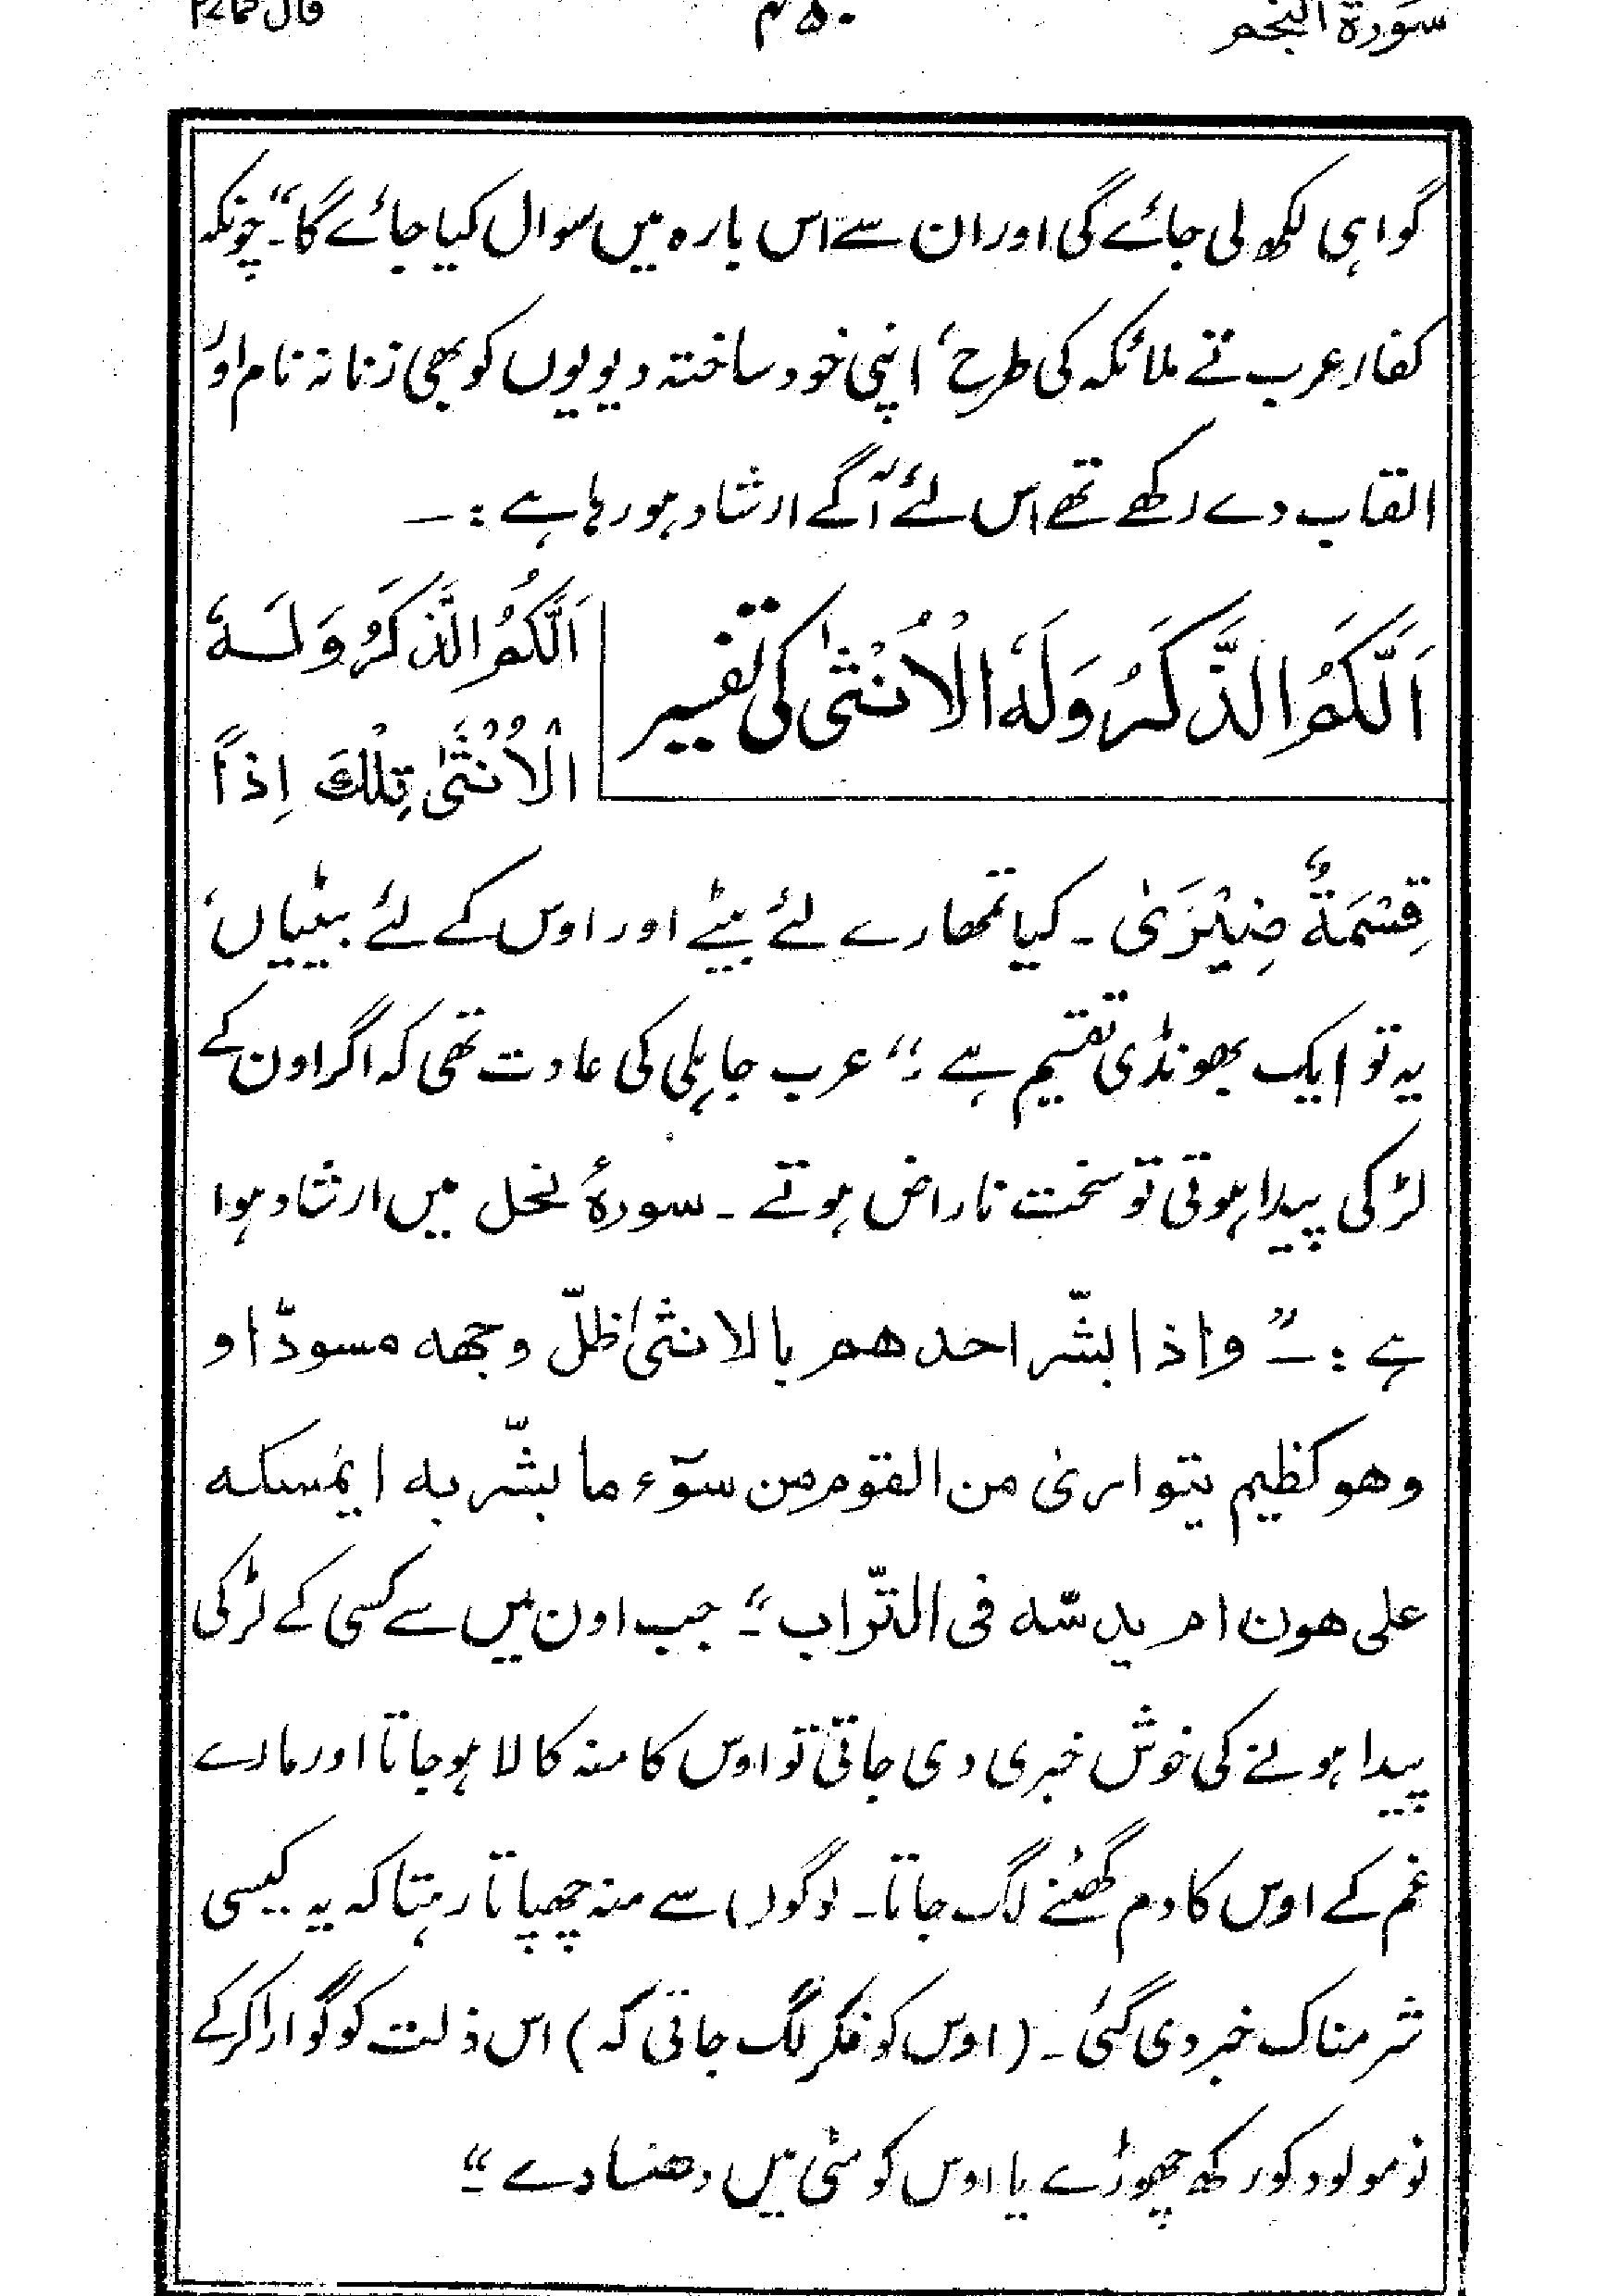 سورة النجم
۴۵۰
گواہی لکھ لی جائے گی اور ان سے اس بارہ میں سوال کیا جائے گا۔“ چونکہ
کفار عرب نے ملائکہ کی طرح، اپنی خود ساختہ دیویوں کو بھی زنانہ نام اور
القاب دے رکھے تھے اس لئے آگے ارشاد ہو رہا ہے :۔
اَلَكُمُ الذَّكَرُ وَلَهُ الْاُنْثٰى کی تفسیر
اَلَكُمُ الذَّكَرُ وَلَهُ
الْاُنْثٰى تِلْكَ اِذاً
قِسْمَةٌ ضِيْزَىٰ ۔ کیا تمھارے لئے بیٹے اور اوس کے لئے بیٹیاں،
یہ تو ایک بھونڈی تقسیم ہے ؛“ عرب جاہلی کی عادت تھی کہ اگر اون کے
لڑکی پیدا ہوتی تو سخت ناراض ہوتے ۔ سورۂ نحل میں ارشاد ہوا
ہے :۔ ”واذا بشّر احدهم بالانثىٰ ظلّ وجهه مسودّا و
وهو كظيم يتوارىٰ من القوم من سوٓء ما بشّر به ايمسكه
على هون ام يدسّه فى التّراب“۔ جب اون میں سے کسی کے لڑکی
پیدا ہونے کی خوش خبری دی جاتی تو اوس کا منہ کالا ہو جاتا اور مارے
غم کے اوس کا دم گھٹنے لگ جاتا۔ لوگوں سے منہ چھپاتا رہتا کہ یہ کیسی
شرمناک خبر دی گئی ۔ (اوس کو فکر لگ جاتی کہ) اس ذلت کو گوارا کر کے
نومولود کو رکھ چھوڑے یا اوس کو مٹی میں دھنسا دے ۔“